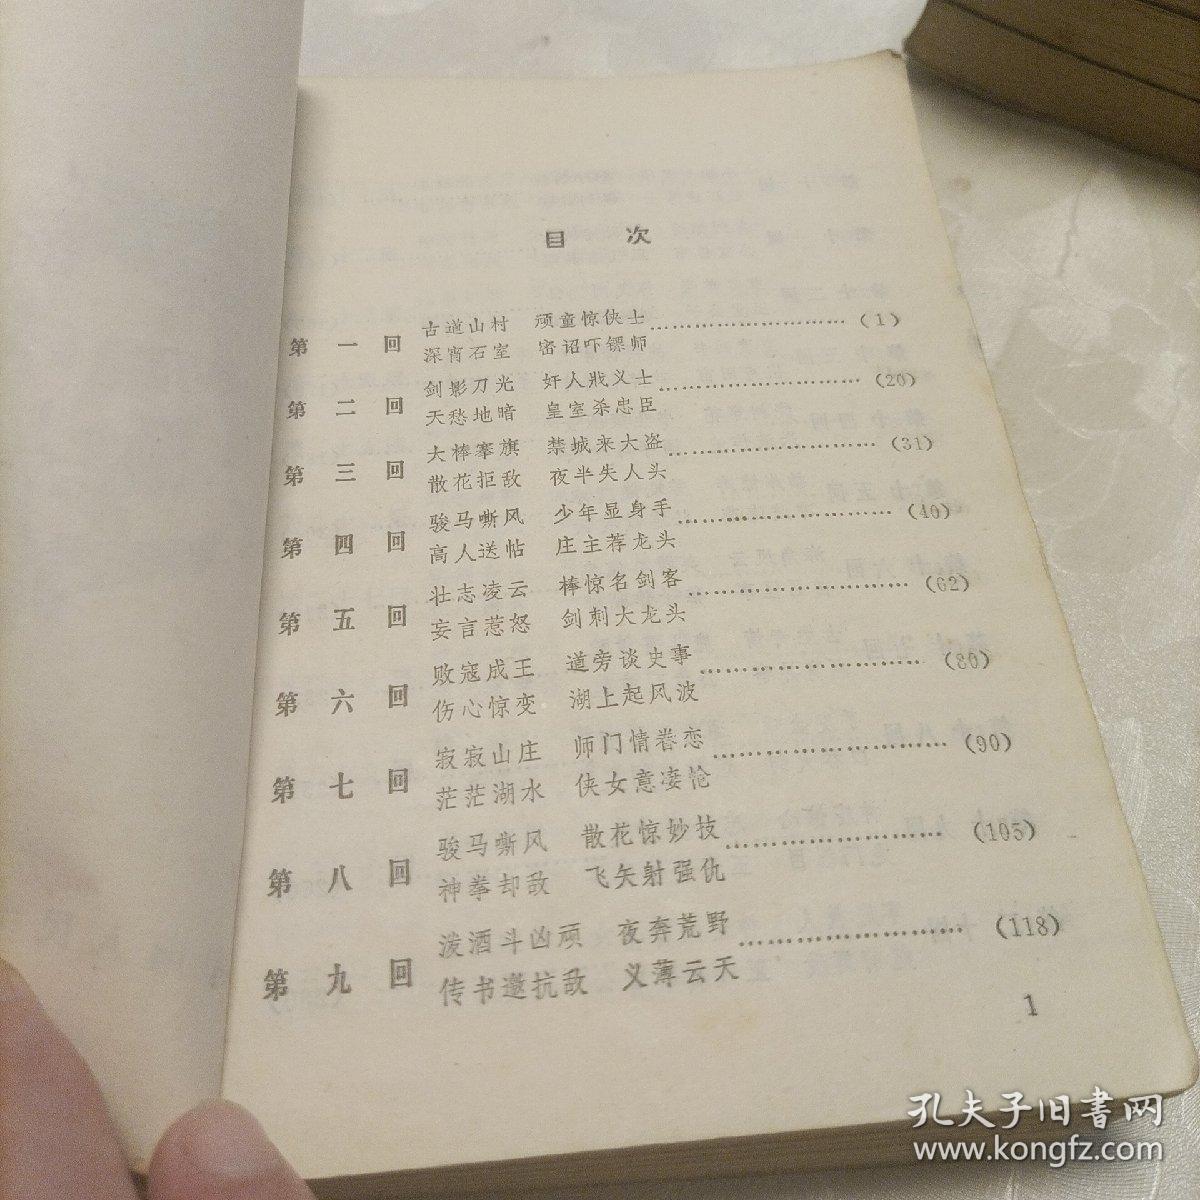 目 次
第一回 古道山村 顽童惊侠士……………………(1)
深宵石室 密诏吓镖师
第二回 剑影刀光 奸人戕义士……………………(20)
天愁地暗 皇室杀忠臣
第三回 大棒搴旗 禁城来大盗……………………(31)
散花拒敌 夜半失人头
第四回 骏马嘶风 少年显身手……………………(40)
高人送帖 庄主荐龙头
第五回 壮志凌云 棒惊名剑客……………………(62)
妄言惹怒 剑刺大龙头
第六回 败寇成王 道旁谈史事……………………(80)
伤心惊变 湖上起风波
第七回 寂寂山庄 师门情眷恋……………………(90)
茫茫湖水 侠女意凄怆
第八回 骏马嘶风 散花惊妙技……………………(105)
神拳却敌 飞矢射强仇
第九回 泼酒斗凶顽 夜奔荒野……………………(118)
传书邀抗敌 义薄云天
1
孔夫子旧书网
www.kongfz.com